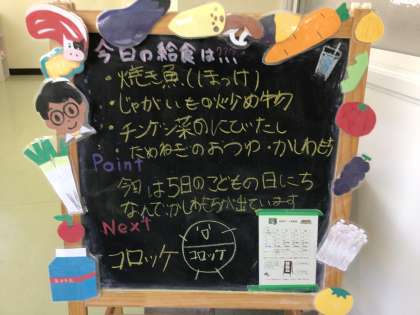 今日の給食は???
・焼き魚(ほっけ)
・じゃがいもの炒め物
・チンゲン菜のにびたし
・たまねぎのおつゆ・かしわもち
Point
今日は5日のこどもの日にち
なんで・かしわもちが出ています
Next
コロッケ
コロッケ